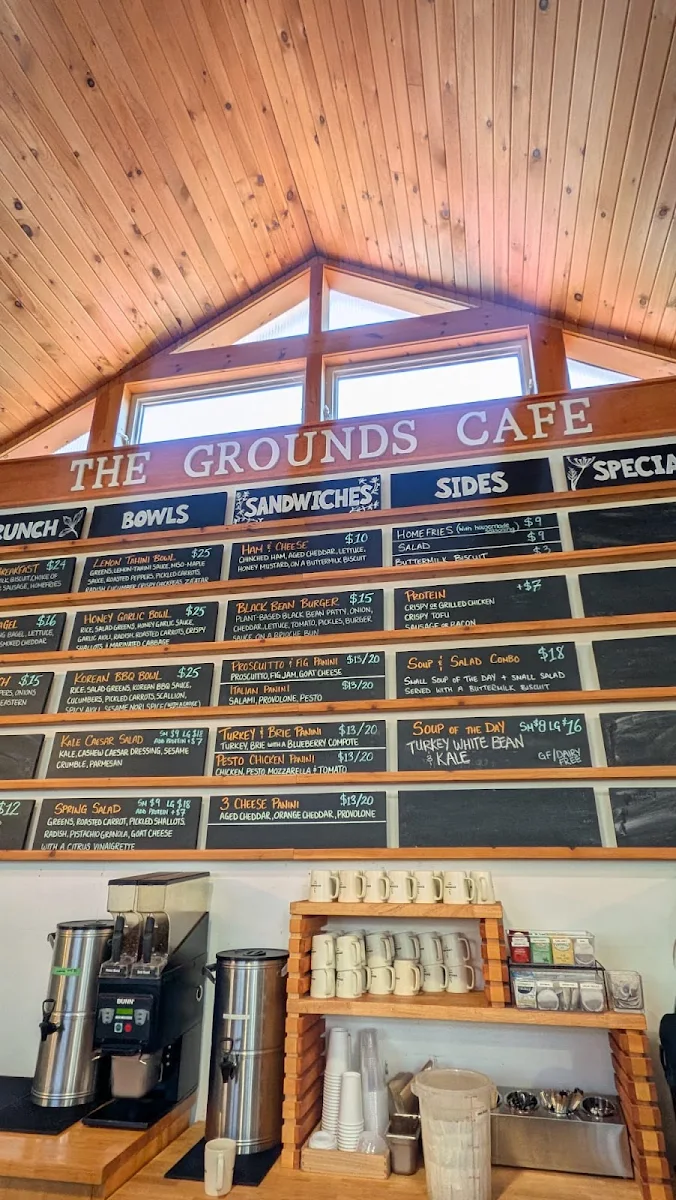 THE GROUNDS CAFE
RUNCH
REAKFAST $24
SAUSAGE, HOMEFRIES
AGEL $16
BAG, LETTUCE,
$15
$12
BOWLS
LEMON TAHINI BOWL $25
GREENS, LEMON-TAHINI SAUCE, MISO-MAPLE
SAUCE, ROASTED PEPPERS, PICKLED CARROTS,
HONEY GARLIC BOWL $25
RICE, SALAD GREENS, HONEY GARLIC SAUCE,
GARLIC AIOLI, RADISH, ROASTED CARROTS, CRISPY
SHALLOTS & MARINATED CABBAGE
KOREAN BBQ BOWL $25
RICE, SALAD GREENS, KOREAN BBQ SAUCE,
CUCUMBERS, PICKLED CARROTS, SCALLION,
SPICY AIOLI, SESAME NORI SPICE
KALE CAESAR SALAD SM $9 LG $18
ADD PROTEIN +$7
KALE, CASHEW CAESAR DRESSING, SESAME
CRUMBLE, PARMESAN
SPRING SALAD SM $9 LG $18
ADD PROTEIN +$7
GREENS, ROASTED CARROT, PICKLED SHALLOTS,
RADISH, PISTACHIO GRANOLA, GOAT CHEESE
WITH A CITRUS VINAIGRETTE
SANDWICHES
HAM & CHEESE $10
HAM, AGED CHEDDAR, LETTUCE,
HONEY MUSTARD, ON A BUTTERMILK BISCUIT
BLACK BEAN BURGER $15
PLANT-BASED BLACK BEAN PATTY, ONION,
CHEDDAR, LETTUCE, TOMATO, PICKLES, BURGER
SAUCE ON A BRIOCHE BUN
PROSCIUTTO & FIG PANINI $13/20
PROSCIUTTO, FIG JAM, GOAT CHEESE
ITALIAN PANINI $13/20
SALAMI, PROVOLONE, PESTO
TURKEY & BRIE PANINI $13/20
TURKEY, BRIE WITH A BLUEBERRY COMPOTE
PESTO CHICKEN PANINI $13/20
CHICKEN, PESTO, MOZZARELLA & TOMATO
3 CHEESE PANINI $13/20
AGED CHEDDAR, ORANGE CHEDDAR, PROVOLONE
SIDES
HOMEFRIES (with housemade seasoning) $9
SALAD $9
BUTTERMILK BISCUIT $3
PROTEIN +$7
CRISPY OR GRILLED CHICKEN
CRISPY TOFU
SAUSAGE OR BACON
SOUP & SALAD COMBO $18
SMALL SOUP OF THE DAY + SMALL SALAD
SERVED WITH A BUTTERMILK BISCUIT
SOUP OF THE DAY SM $8 LG $16
TURKEY WHITE BEAN
& KALE GF/DAIRY
FREE
SPECIA
BUNN